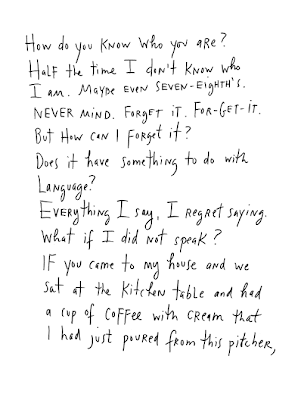 How do you know who you are?
Half the time I don't know who
I am. Maybe even seven-eighth's.
NEVER MIND. FORGET IT. FOR-GET-IT.
But how can I forget it?
Does it have something to do with
Language?
Everything I say, I regret saying.
What if I did not speak?
If you came to my house and we
sat at the kitchen table and had
a cup of coffee with cream that
I had just poured from this pitcher,